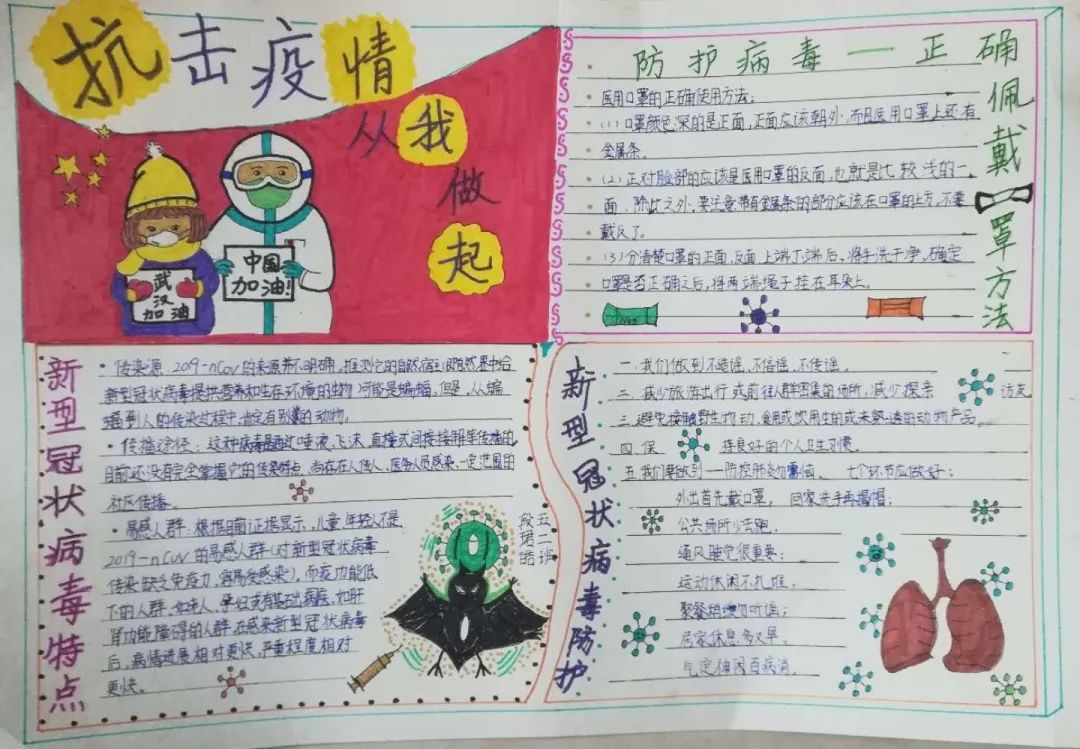 抗击疫情
从我做起
武汉加油
中国加油!
防护病毒一正确佩戴口罩方法
医用口罩的正确使用方法:
(1)口罩颜色深的是正面,正面应该朝外,而且医用口罩上还有
金属条。
(2)正对脸部的应该是医用口罩的反面,也就是比较浅的一
面、除此之外,要注意带有金属条的部分应该在口罩的上方,不要
戴反了。
(3)分清楚口罩的正面、反面、上端下端后,将手洗干净,确定
口罩是否正确之后,将两端绳子挂在耳朵上。
新型冠状病毒特点
传染源:2019-nCoV的来源并不明确,推测它的自然宿主(即自然界中给
新型冠状病毒提供营养和生存环境的生物)可能是蝙蝠,但是,从蝙
蝠到人的传染过程中,肯定有别的动物。
传播途径:这种病毒是通过唾液、飞沫、直接或间接接触等传播的,
目前还没有完全掌握它的传染特点,尚存在人传人、医务人员感染、一定范围的
社区传播。
易感人群:根据目前证据显示,儿童,年轻人不是
2019-nCoV的易感人群(对新型冠状病毒
传染缺乏免疫力,容易受感染),而疫功能低
下的人群,如老人、孕妇或有基础病症,如肝
肾功能障碍的人群,在感染新型冠状病毒
后,病情进展相对更快,严重程度相对
更快。
五二班
段珺皓
新型冠状病毒防护
一、我们做到不造谣、不信谣、不传谣。
二、减少旅游出行或前往人群密集的场所,减少探亲访友
三、避免接触野生动物,食用或饮用生的或未熟透的动物产品。
四、保持良好的个人卫生习惯。
五、我们要做到一防控肺炎勿害恼、七个环节应做好:
外出首先戴口罩,回家洗手再摘帽;
公共场所少去跑,
通风睡觉很重要;
运动休闲不扎堆,
聚餐相邀勿听谣;
居家休息多又早,
气定神闲百病消。